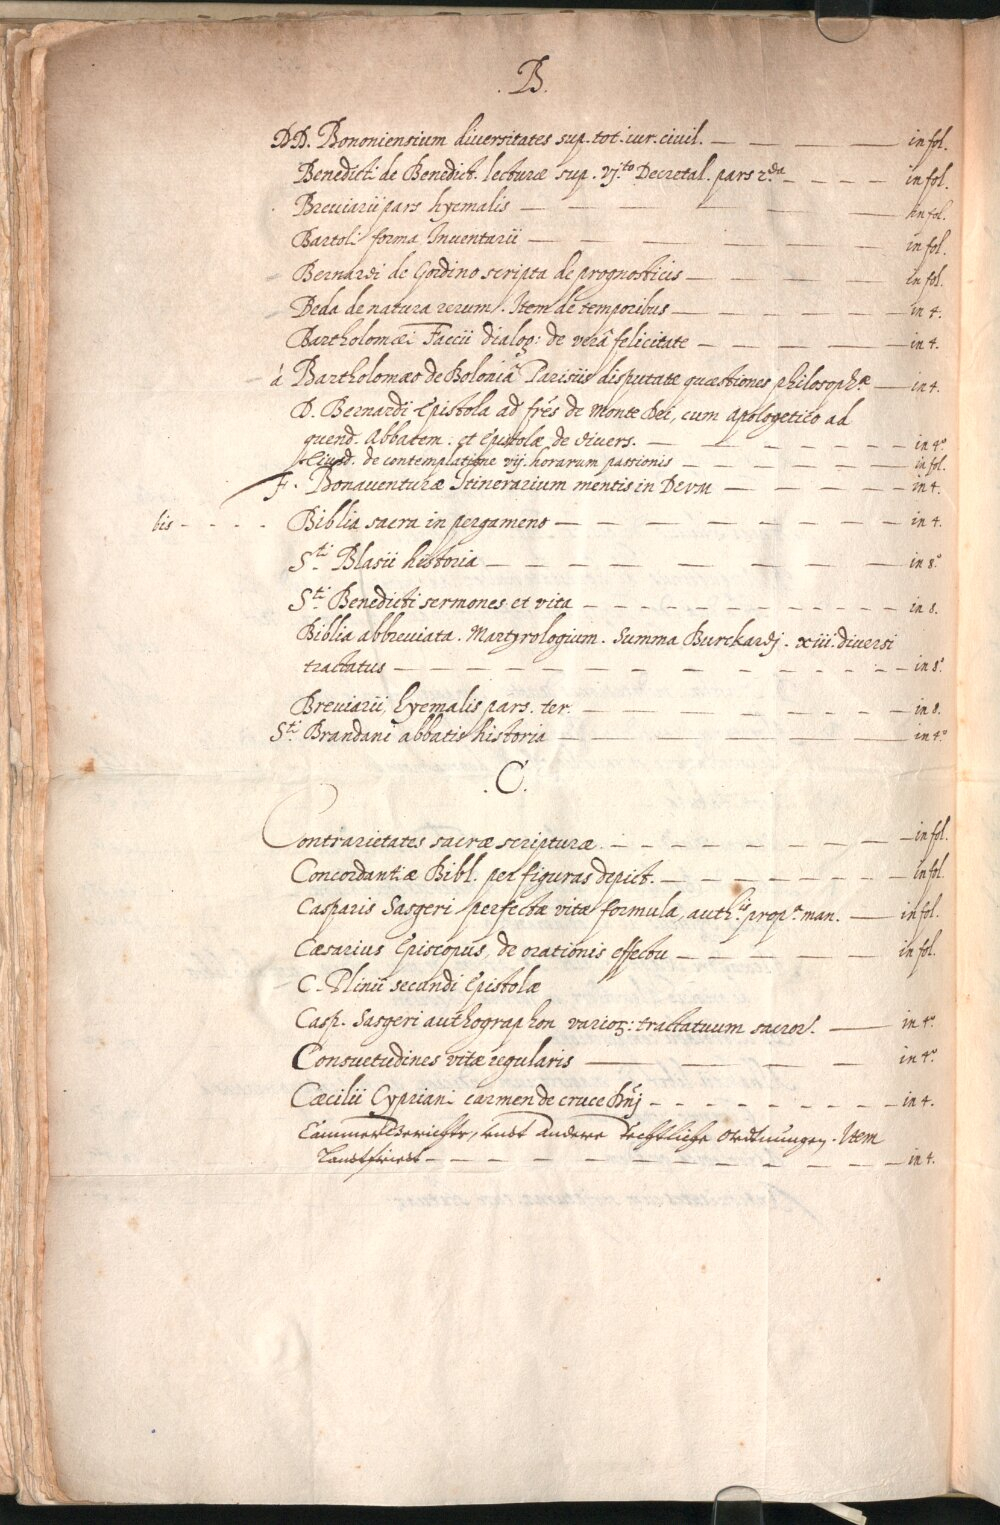 . B.
DD. Bononiensium diuersitates sup. tot. iur. civil. — in fol.
Benedicti de Benedict. lecturæ sup. vj.to Decretal. pars 2.da — in fol.
Breuiarii pars hyemalis — in fol.
Bartoli forma Inuentarii — in fol.
Bernardi de Gordino scripta de prognosticis — in fol.
Beda de natura rerum. Item de temporibus — in 4.
Bartholomæi Faccii dialog: de verâ felicitate — in 4.
á Bartholomæo de Boloniâ Parisiis disputatæ quæstiones philosoph.æ — in 4.
D. Bernardi Epistola ad frēs de Monte Dei, cum Apologetico ad
quend. Abbatem. et Epistolæ de divers. — in 4.o
Eiusd. de contemplatione vij. horarum passionis — in fol.
F. Bonauenturæ Itinerarium mentis in DEVM — in 4.
bis - - - - Biblia sacra in pergameno — in 4.
S.ti Blasii historia — in 8.o
S.ti Benedicti sermones et vita — in 8.
Biblia abbreviata. Martyrologium. Summa Burckardj. xiii. diversi
tractatus — in 8.o
Breviarii hyemalis pars. ter. — in 8.
S.ti Brandani abbatis historia — in 4.o
. C.
Contrarietates sacræ scripturæ. — in fol.
Concordantiæ Bibl. per figuras depict. — in fol.
Casparis Sasgeri perfectæ vitæ formula, auth.is prop.a man. — in fol.
Cæsarius Episcopus, de orationis effectu — in fol.
C. Plinii secundi Epistolæ
Casp. Sasgeri authographon varioꝝ: tractatuum sacror. — in 4.o
Consuetudines vitæ regularis — in 4.o
Cæcilii Cypriani carmen de cruce Dn̄j — in 4.
CammerGerichts, undt andere rechtliche Ordtnungen. Item
Landtfriedt — in 4.